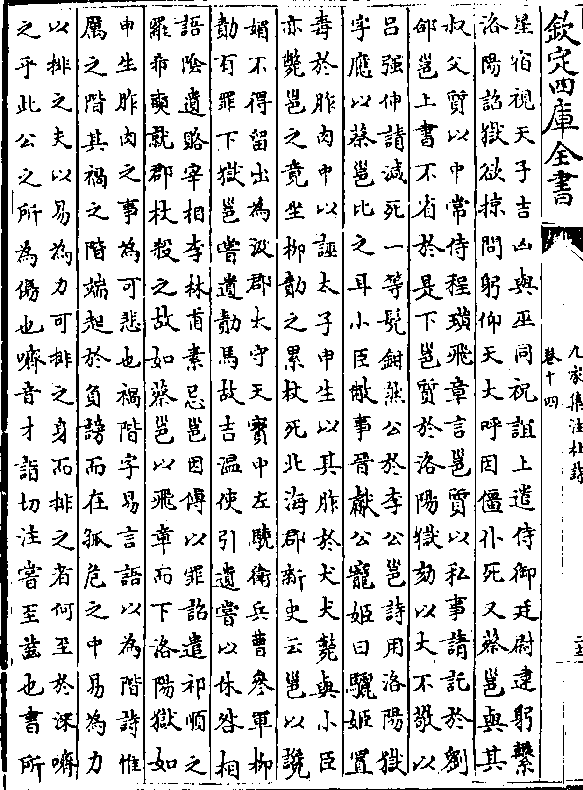 欽定四庫全書
九家集注杜詩
卷十四
星宿視天子吉凶與巫同祝詛上遣侍御廷尉逮躬繫
洛陽詔獄欲掠問躬仰天大呼因僵仆死又蔡邕與其
叔父質以中常侍程璜飛章言邕質以私事請託於劉
郃邕上書不省於是下邕質於洛陽獄劾以大不敬以
吕强伸請減死一等髡鉗然公於李公邕詩用洛陽獄
字應以蔡邕比之耳小臣敝事晉獻公寵姬曰驪姬置
毒於胙肉中以誣太子申生以其胙於犬犬斃與小臣
亦斃邕之竟坐柳勣之累杖死北海郡新史云邕以讒
媢不得留出為汲郡太守天寳中左驍衛兵曹參軍柳
勣有罪下獄邕嘗遺勣馬故吉温使引遺嘗以休咎相
語陰遺賂宰相李林甫素忌邕因傅以罪詔遣祁順之
羅希奭就郡杖殺之故如蔡邕以飛章而下洛陽獄如
申生胙肉之事為可悲也禍階字易言語以為階詩惟
厲之階其禍之階端起於負謗而在孤危之中易為力
以排之夫以易為力可排之身而排之者何至於深嚌
之乎此公之所為傷也嚌音才詣切注嘗至齒也書所